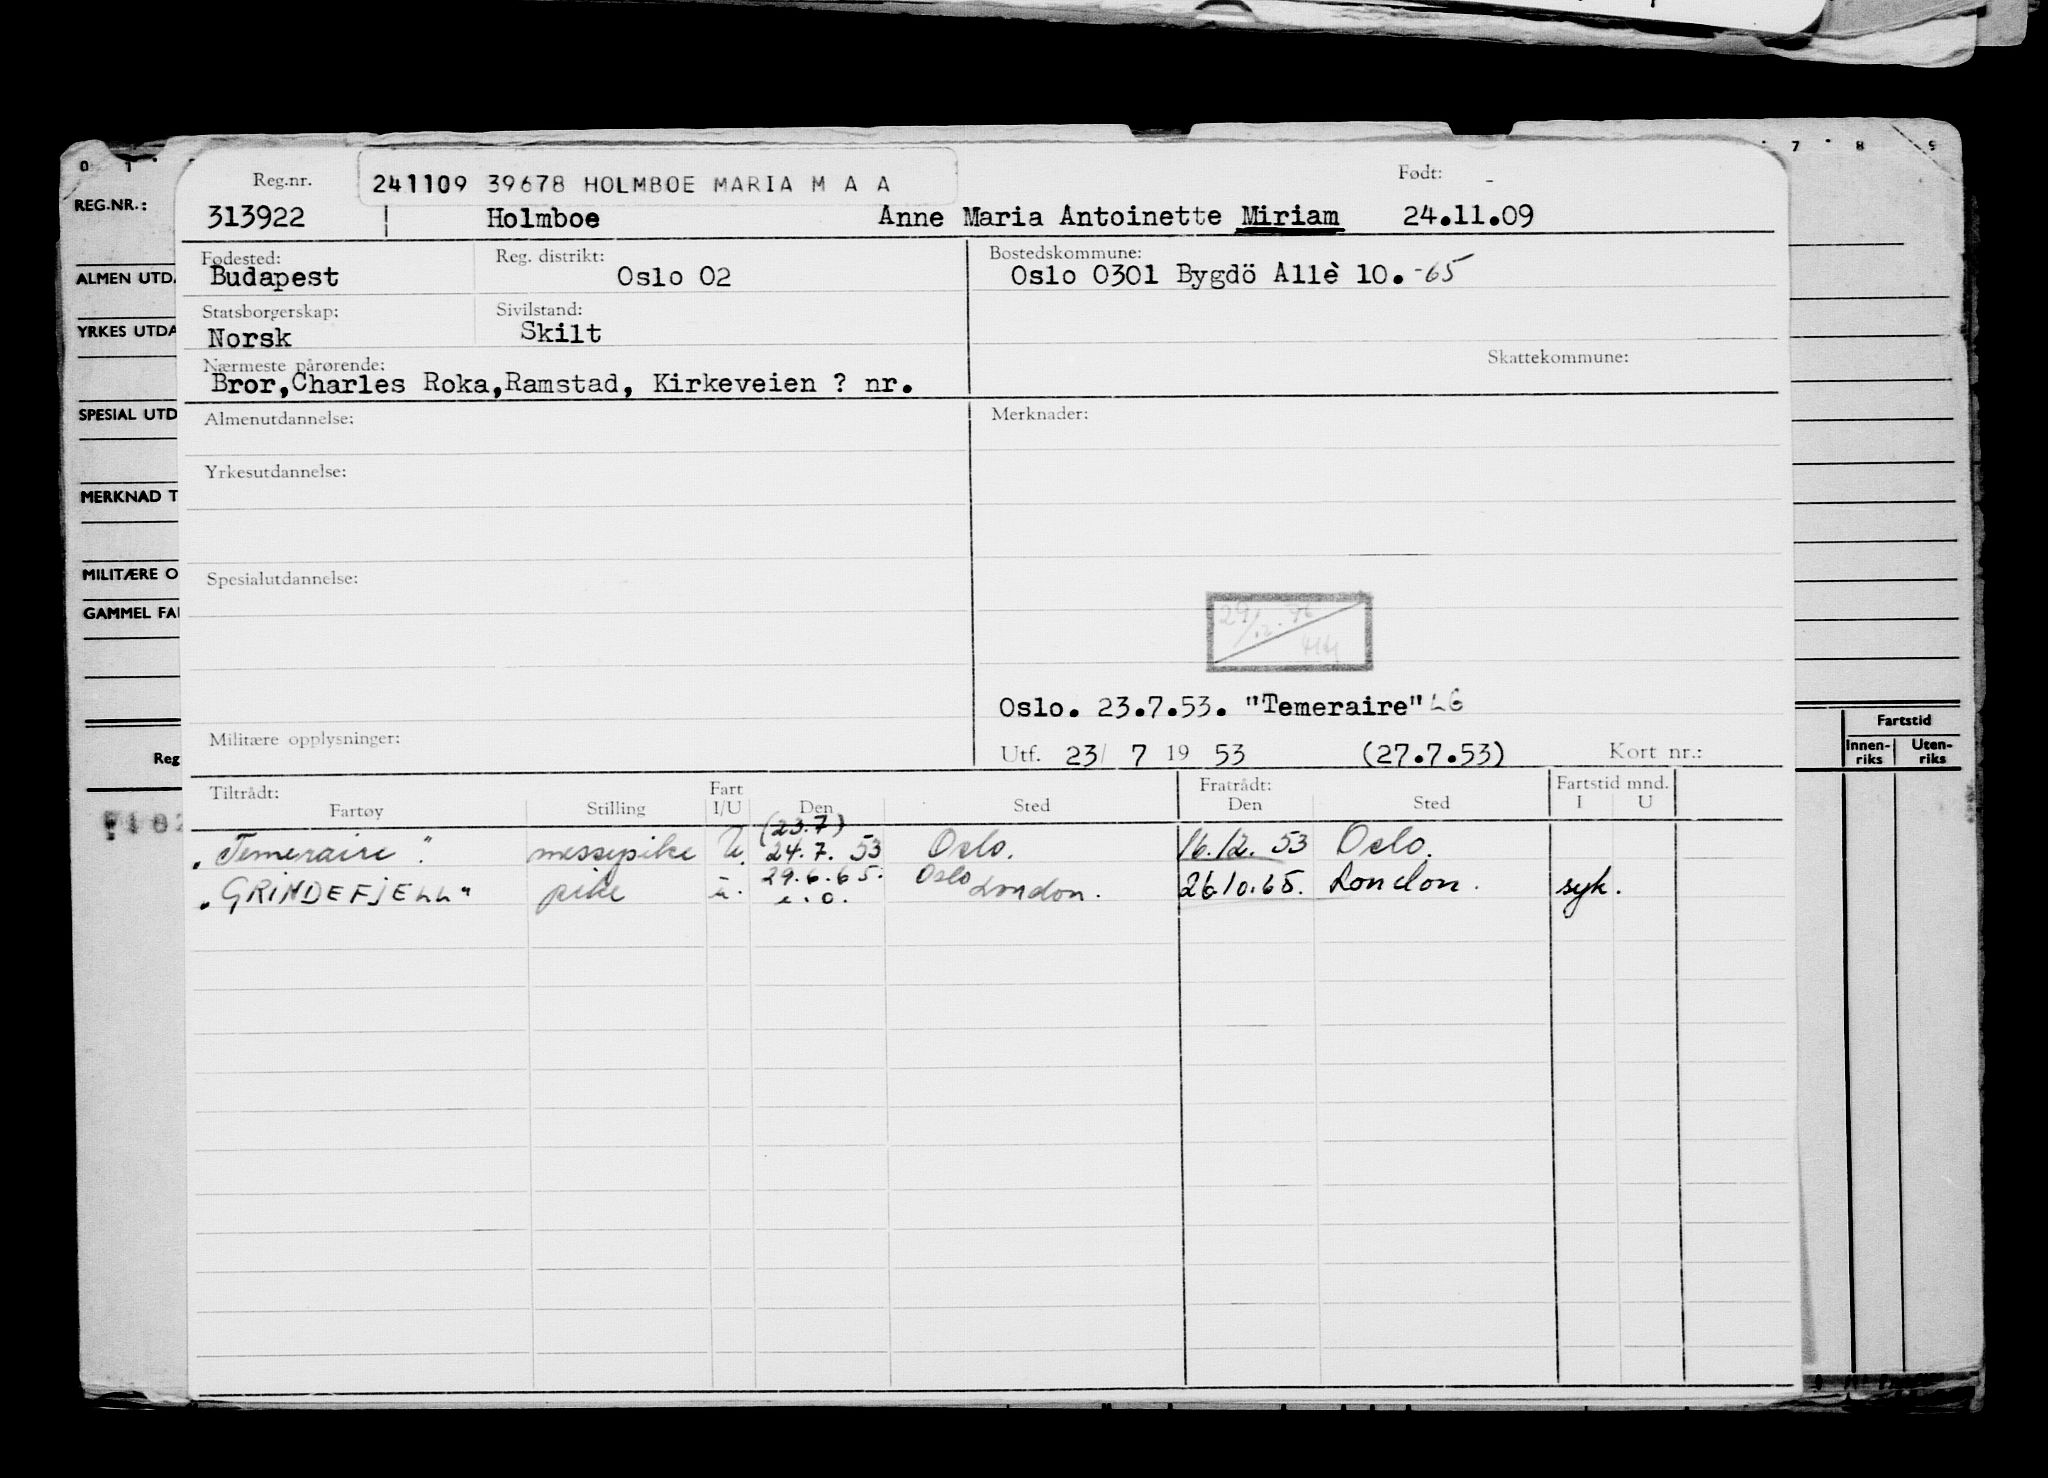 0 1 7 8 9
REG.NR.:
ALMEN UTDA
YRKES UTDA
SPESIAL UTD
MERKNAD T
MILITÆRE O
GAMMEL FA
Reg
Fartstid
Innen-riks Uten-riks
Reg.nr. 241109 39678 HOLMBOE MARIA M A A Født: -
313922 Holmboe Anne Maria Antoinette Miriam 24.11.09
Fødested: Reg. distrikt: Bostedskommune:
Budapest Oslo 02 Oslo 0301 Bygdö Allè 10. -65
Statsborgerskap: Sivilstand:
Norsk Skilt
Nærmeste pårørende: Skattekommune:
Bror,Charles Roka,Ramstad, Kirkeveien ? nr.
Almenutdannelse: Merknader:
Yrkesutdannelse:
Spesialutdannelse:
Oslo. 23.7.53. "Temeraire" LG
Militære opplysninger: Utf. 23/ 7 19 53 (27.7.53) Kort nr.:
Tiltrådt: Fart Fratrådt: Fartstid mnd.
Fartøy Stilling I/U Den Sted Den Sted I U
(23.7)
„Temeraire". messepike U. 24.7.53 Oslo. 16.12.53 Oslo.
„GRINDEFJELL" pike u. 29.6.65. Oslo London. 26.10.65. London. syk.